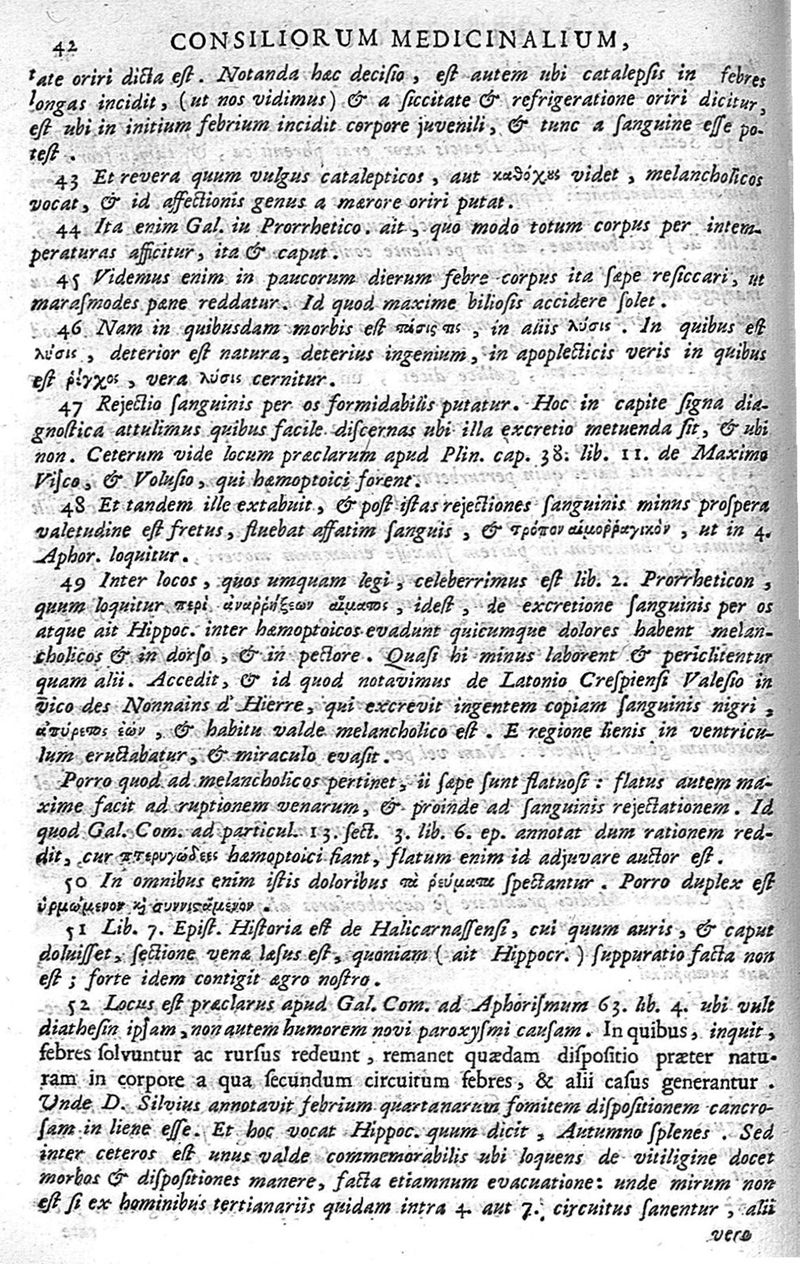 42 CONSILIORUM MEDICINALIUM,
tate oriri dicta est. Notanda hæc decisio, est autem ubi catalepsis in febres
longas incidit, (ut nos vidimus) & a siccitate & refrigeratione oriri dicitur,
est ubi in initium febrium incidit corpore juvenili, & tunc a sanguine esse po-
test.
43 Et revera quum vulgus catalepticos, aut καθόχȣς videt, melancholicos
vocat, & id affectionis genus a mærore oriri putat.
44 Ita enim Gal. iu Prorrhetico. ait, quo modo totum corpus per intem-
peraturas afficitur, ita & caput.
45 Videmus enim in paucorum dierum febre corpus ita sæpe resiccari, ut
marasmodes pæne reddatur. Id quod maxime biliosis accidere solet.
46 Nam in quibusdam morbis est πάσις τις, in aliis λύσις. In quibus est
λύσις, deterior est natura, deterius ingenium, in apoplecticis veris in quibus
est ῥίγχος, vera λύσις cernitur.
47 Rejectio sanguinis per os formidabilis putatur. Hoc in capite signa dia-
gnostica attulimus quibus facile discernas ubi illa excretio metuenda sit, & ubi
non. Ceterum vide locum præclarum apud Plin. cap. 38. lib. 11. de Maximo
Visco, & Volusio, qui hæmoptoici forent.
48 Et tandem ille extabuit, & post istas rejectiones sanguinis minus prospera
valetudine est fretus, fluebat affatim sanguis, & τρόπον αἱμορῥαγικὸν, ut in 4.
Aphor. loquitur.
49 Inter locos, quos umquam legi, celeberrimus est lib. 2. Prorrheticon,
quum loquitur περὶ ἀναρρήξεων αἵματος, idest, de excretione sanguinis per os
atque ait Hippoc. inter hæmoptoicos evadunt quicumque dolores habent melan-
cholicos & in dorso, & in pectore. Quasi hi minus laborent & periclitentur
quam alii. Accedit, & id quod notavimus de Latonio Crespiensi Valesio in
vico des Nonnains d'Hierre, qui excrevit ingentem copiam sanguinis nigri,
ἀπύρετος ἐών, & habitu valde melancholico est. E regione lienis in ventricu-
lum eructabatur, & miraculo evasit.
Porro quod ad melancholicos pertinet, ii sæpe sunt flatuosi: flatus autem ma-
xime facit ad ruptionem venarum, & proinde ad sanguinis rejectationem. Id
quod Gal. Com. ad particul. 13. sect. 3. lib. 6. ep. annotat dum rationem red-
dit, cur πτερυγώδεες hæmoptoici fiant, flatum enim id adjuvare auctor est.
50 In omnibus enim istis doloribus τὰ ῥεύματα spectantur. Porro duplex est
ὁρμώμενον κ̀ συνιστάμενον.
51 Lib. 7. Epist. Historia est de Halicarnassensi, cui quum auris, & caput
doluisset, sectione venæ læsus est, quoniam (ait Hippocr.) suppuratio facta non
est; forte idem contigit ægro nostro.
52 Locus est præclarus apud Gal. Com. ad Aphorismum 63. lib. 4. ubi vult
diathesin ipsam, non autem humorem novi paroxysmi causam. In quibus, inquit,
febres solvuntur ac rursus redeunt, remanet quædam dispositio præter natu-
ram in corpore a qua secundum circuitum febres, & alii casus generantur.
Unde D. Silvius annotavit febrium quartanarum fomitem dispositionem cancro-
sam in liene esse. Et hoc vocat Hippoc. quum dicit, Autumno splenes. Sed
inter ceteros est unus valde commemorabilis ubi loquens de vitiligine docet
morbos & dispositiones manere, facta etiamnum evacuatione: unde mirum non
est si ex hominibus tertianariis quidam intra 4. aut 7. circuitus sanentur, alii
vero